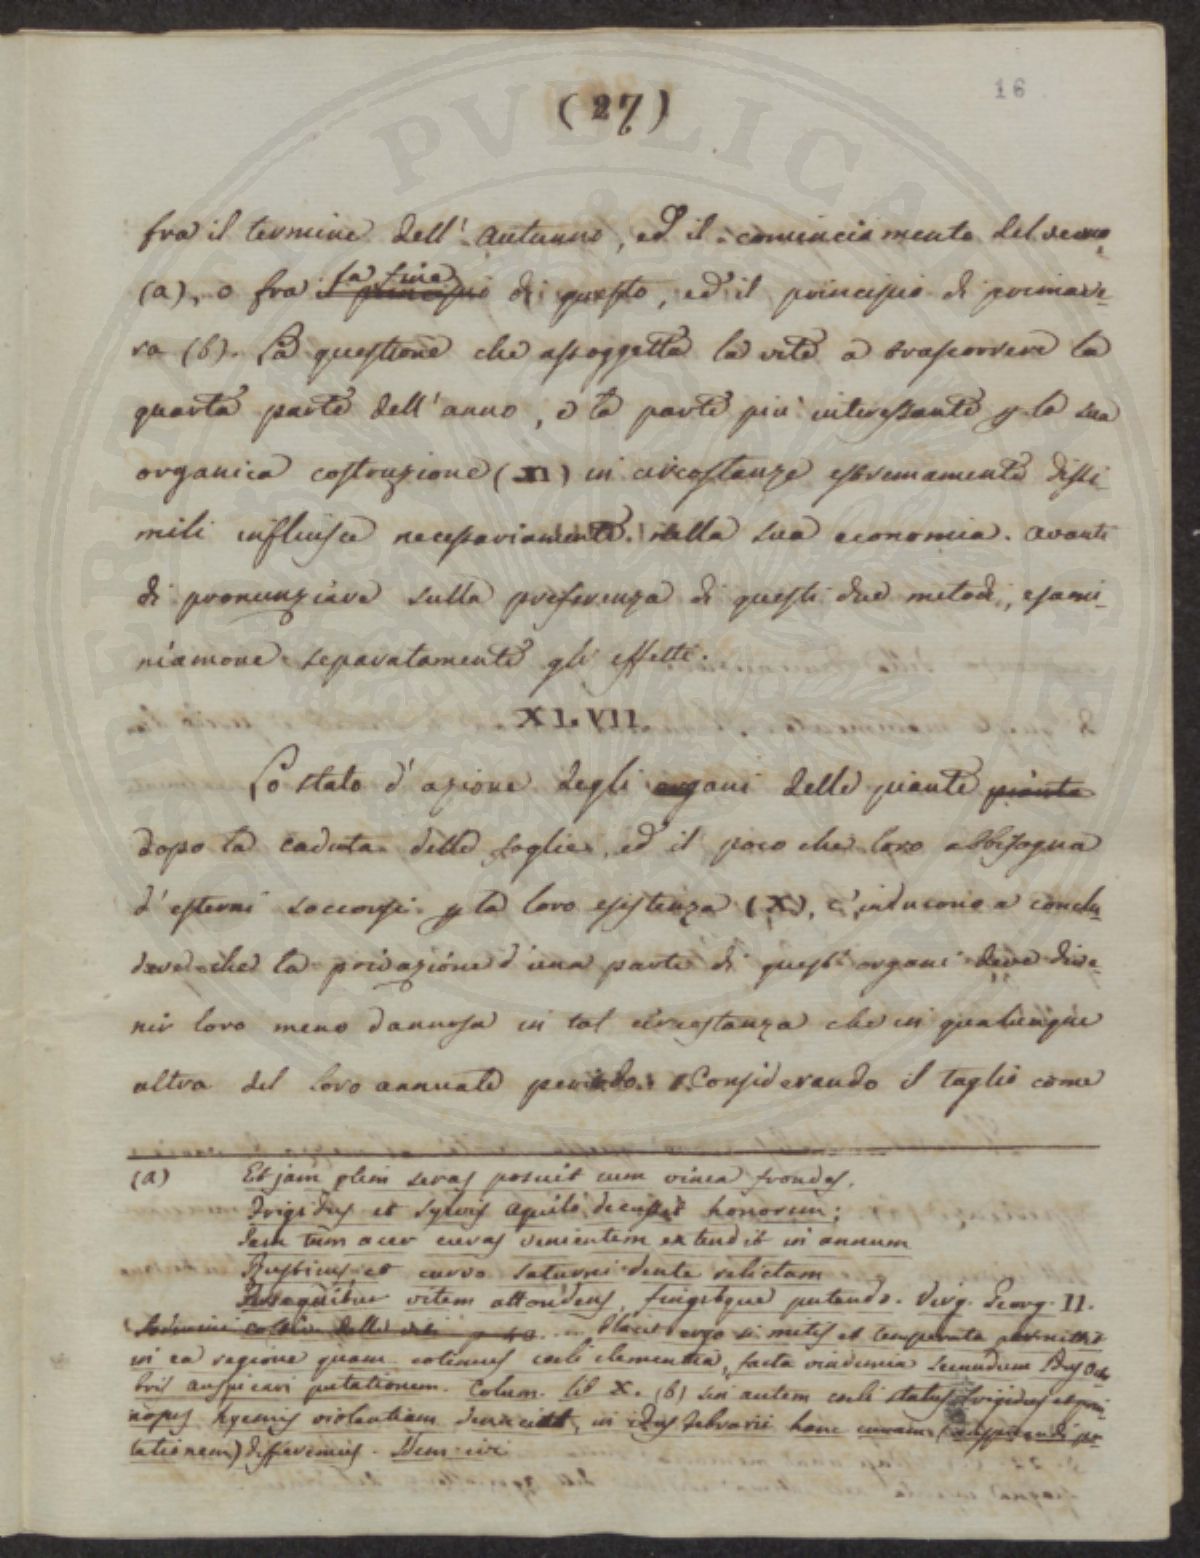 16
(27)
fra il termine dell'Autunno, ed il cominciamento del verno
(a), o fra il principio la fine di questo, ed il principio di primave-
ra (b). La questione che assoggetta la vite a trascorrere la
quarta parte dell'anno, e la parte più interessante p la sua
organica costruzione (XI) in circostanze estremamente dissi-
mili influisce necessariamente nella sua economia. Avanti
di pronunziare sulla preferenza di questi due metodi, esami-
niamone separatamente gli effetti.
XLVII.
Lo stato d'azione degli organi delle piante pianta
dopo la caduta delle foglie, ed il poco che loro abbisogna
d'esterni soccorsi p la loro esistenza (X), c'inducono a conclu-
dere che la privazione d'una parte di questi organi deve dive-
nir loro meno dannosa in tal circostanza che in qualunque
altra del loro annuale periodo. Considerando il taglio come
(a) Et jam plim seras posuit cum vinea frondes.
Frigidus et sylvis Aquilo decussit honorem;
Jam tum acer curas venientem extendit in annum
Rusticus, et curvo saturni dente relictam
Persequitur vitem attondens, fingitque putando. Virg. Georg. II.
delle viti Placet ergo si mitis et temperata permittit
in ea regione quam colimus coeli clementia, facta vindemia secundum Idus Octo
bris auspicari putationem. Colum. lib X. (b) sin autem coeli status frigidus et prui
nosus hyemis violentiam denuntiat, in idus Februarii hanc curam (auspicandi pu-
tationem) differemus. Idem ivi